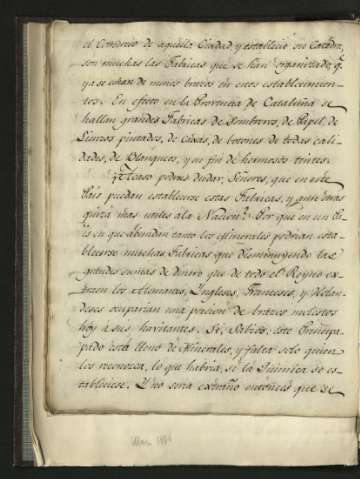 el Comercio de aquella Ciudad y estableció su Catedra,
son muchas las Fabricas que se han organizado, q.
ya se echan de menos brazos en esos establecimien-
tos. En efecto en la Provincia de Cataluña se
hallan grandes Fabricas de Sombreros, de Papel, de
Lienzos pintados, de de botones de todas cali-
dades, de Blanqueos, y en fin de hermosos tintes.
¿Acaso podrás dudar, Señores, que en este
Pais puedan establecerse estas Fabricas, y aun otras
quizá mas utiles a la Nacion? Por que en un Pa-
is en que abundan tanto los Minerales podrian esta-
blecerse muchas Fabricas que disminuyendo las
grandes sumas de dinero que de todo el Reyno ex-
traen los Alemanes, Yngleses, Franceses, y Holan-
deses ocuparian una porcion de brazos molestos
hoy à sus havitantes. Si, Sabios, este Princi-
pado está lleno de Minerales, y falta solo quien
los reconozca, lo que habria, si la Quimica se es-
tableciese. Y no seria extraño entonces que se